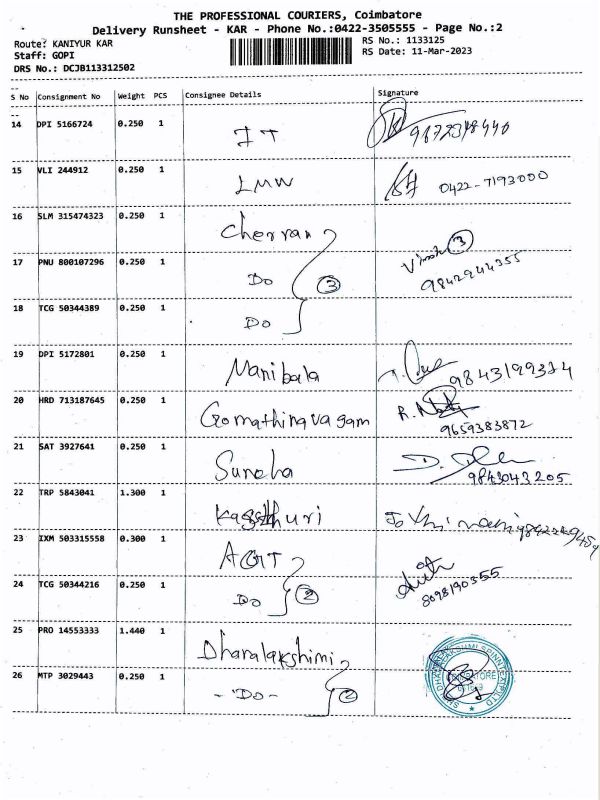 THE PROFESSIONAL COURIERS, Coimbatore
Delivery Runsheet - KAR - Phone No.:0422-3505555 - Page No.:2
Route: KANIYUR KAR
RS No.: 1133125
Staff: GOPI
RS Date: 11-Mar-2023
DRS No.: DCJB113312502
S No Consignment No Weight PCS Consignee Details Signature
14 DPI 5166724 0.250 1 IT
15 VLI 244912 0.250 1 LMW 0422-7193000
16 SLM 315474323 0.250 1 Cherran
17 PNU 800107296 0.250 1 Do 3 3 9842944355
18 TCG 50344389 0.250 1 Do
19 DPI 5172801 0.250 1 Manibala
20 HRD 713187645 0.250 1 Gomathinavagam R. 9659383872
21 SAT 3927641 0.250 1 Suneha D. 9843043205
22 TRP 5843041 1.300 1
23 IXM 503315558 0.300 1
24 TCG 50344216 0.250 1 Do 2 8098190355
25 PRO 14553333 1.440 1 Dhanalakshimi
26 MTP 3029443 0.250 1 - Do - 2